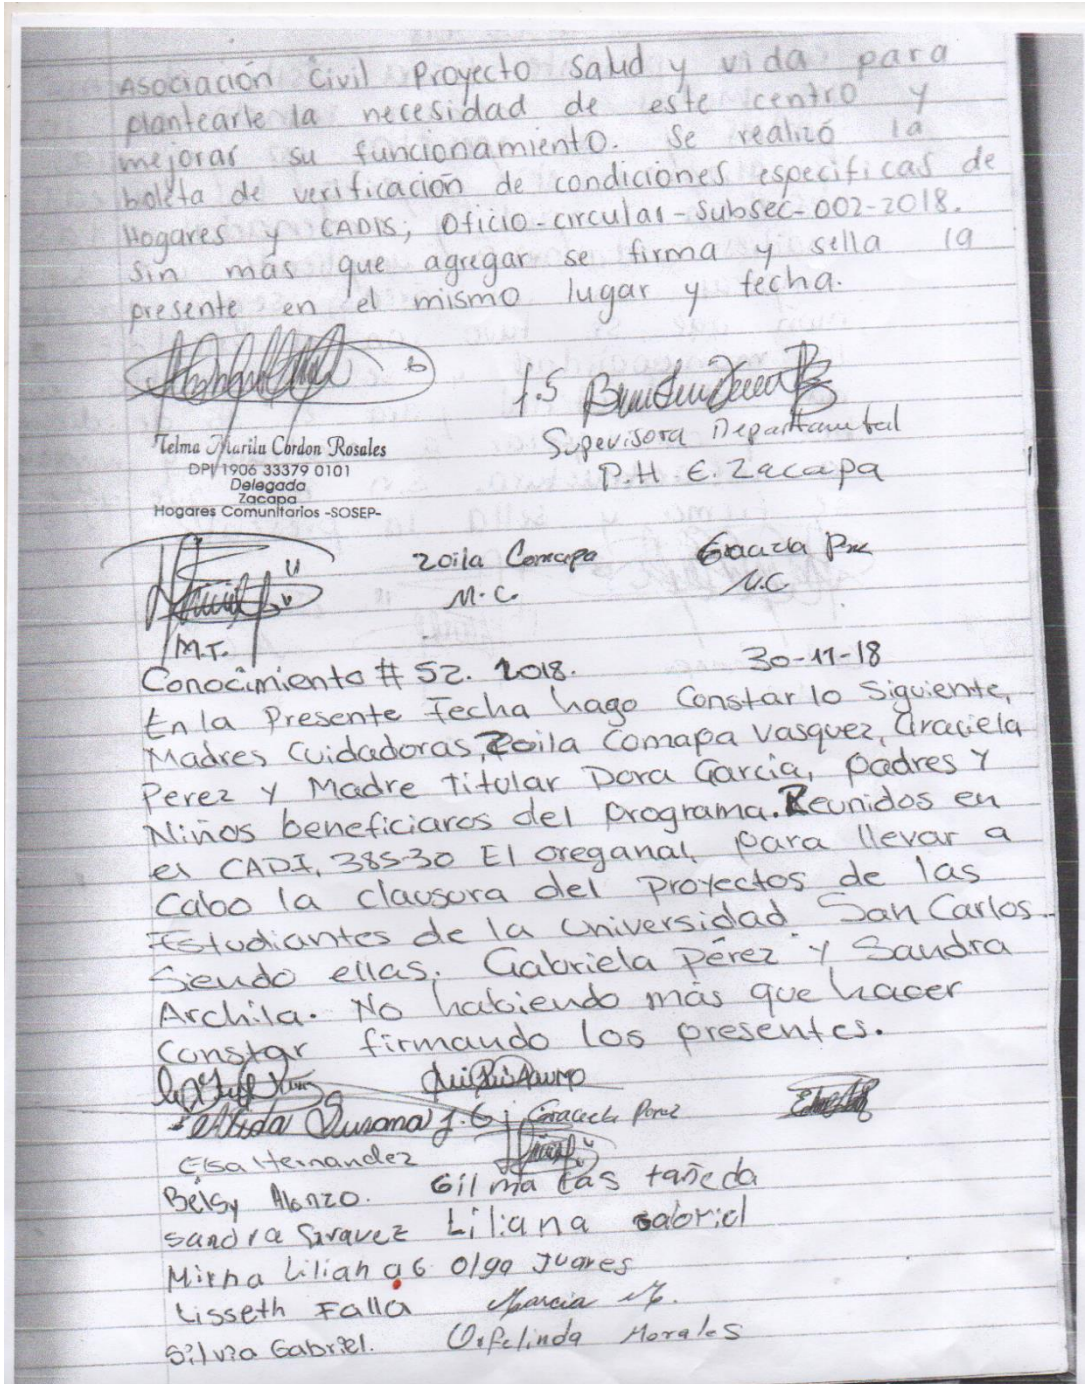 Asociación Civil Proyecto Salud y vida para
plantearle la necesidad de este centro y
mejorar su funcionamiento. Se realizó la
boleta de verificación de condiciones especificas de
Hogares y CADIS; Oficio-circular-Subsec-002-2018.
Sin más que agregar se firma y sella la
presente en el mismo lugar y fecha.
f.S
Telma Marilu Cordon Rosales
DPI 1906 33379 0101
Delegada
Zacapa
Hogares Comunitarios -SOSEP-
Supevisora Departamental
P.H E. Zacapa
Zoila Comapa
M.C.
Graciela
M.C.
M.T.
Conocimiento # 52. 2018. 30-11-18
En la Presente Fecha hago Constar lo Siguiente,
Madres Cuidadoras, Zoila Comapa Vasquez, Graciela
Perez Y Madre Titular Dora Garcia, padres Y
Niños beneficiaros del programa. Reunidos en
el CADI, 385-30 El oreganal, para llevar a
Cabo la clausura del Proyectos de las
Estudiantes de la Universidad San Carlos
Siendo ellas. Gabriela Pérez Y Sandra
Archila. No habiendo más que hacer
Constar firmando los presentes.
Elida Susana J. G. Graciela Perez
Elsa Hernandez
Belsy Alonzo. Gilma Castañeda
Sandra Liliana Gabriel
Mirna Liliana G Olga Juares
Lisseth Falla Marcia M.
Silvia Gabriel. Orfelinda Morales